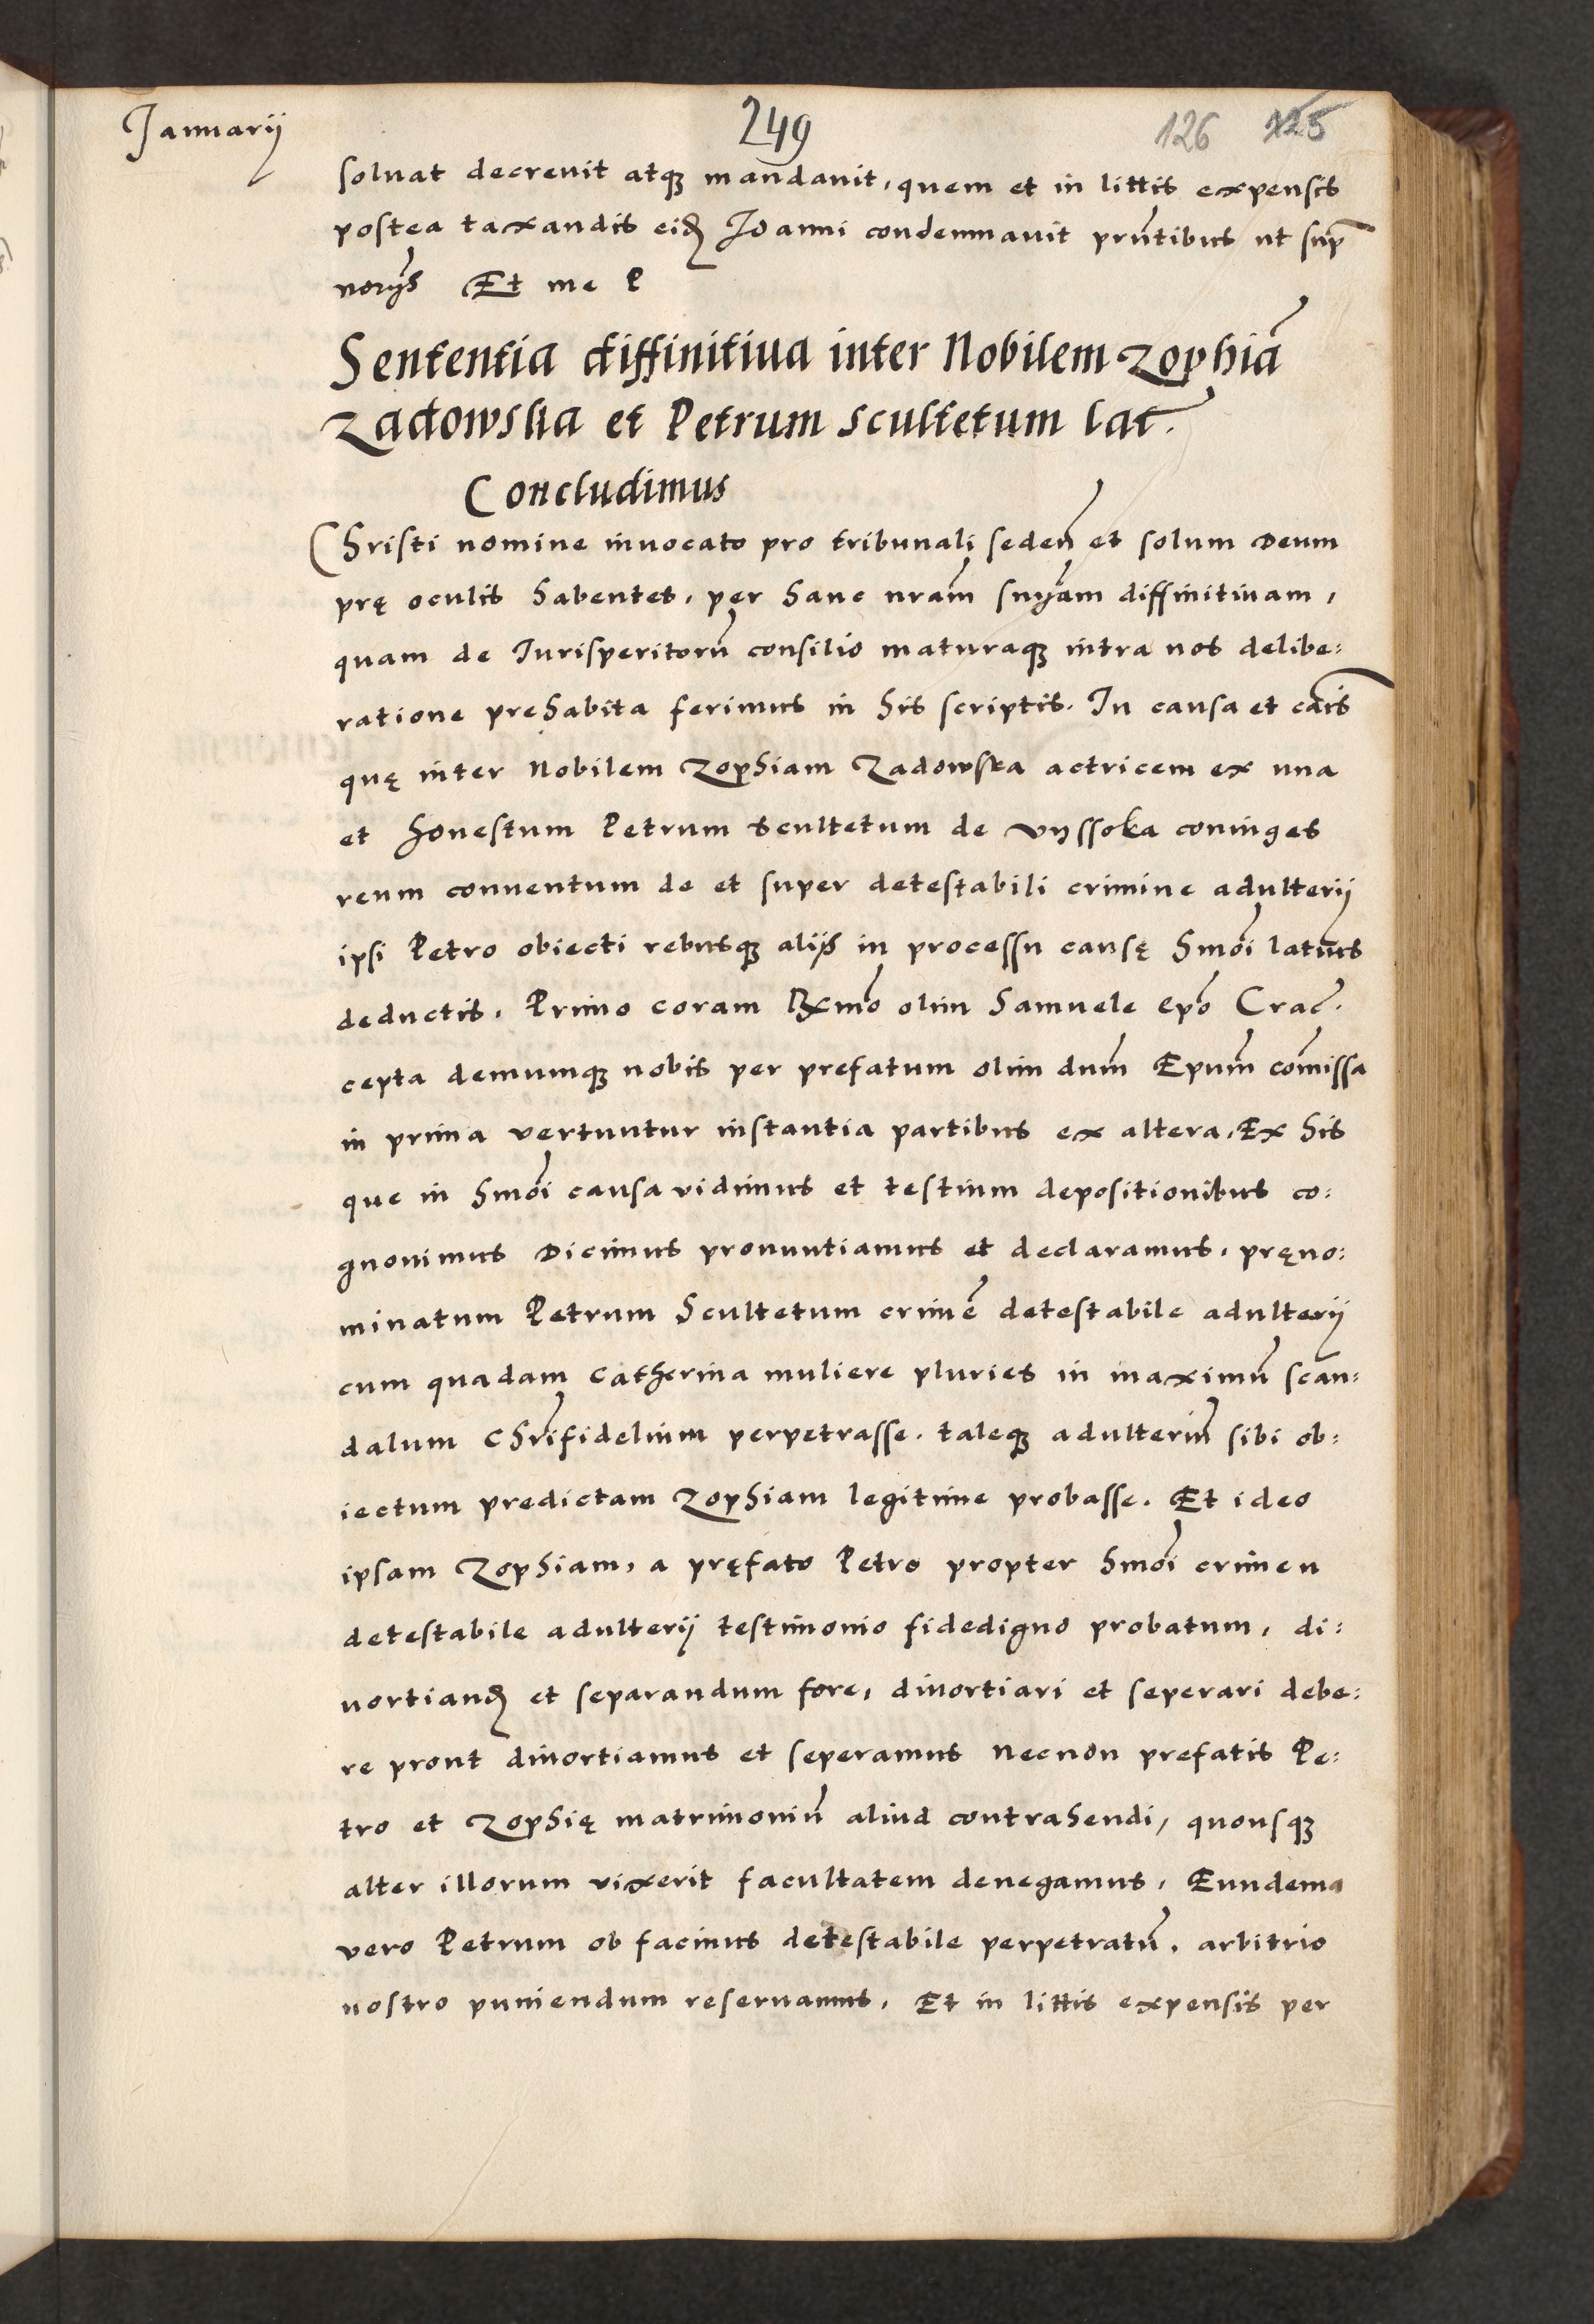 Januarij
249
126 125
soluat decreuit atq̃ mandauit, quem et in littis expensis
postea taxandis eid̃ Joanni condemnauit pñtibus ut sup̃
norijs Et me P
Sententia diffinitiua inter Nobilem Zophiã
Zadowska et Petrum Scultetum lat.
Concludimus
Christi nomine inuocato pro tribunali seden̄ et solum Deum
prę oculis habentes, per hanc nr̄am sn̄iam diffinitiuam,
quam de Jurisperitorū consilio maturaq̃ intra nos delibe:
ratione prehabita ferimus in his scriptis. In causa et cāis
quę inter Nobilem Zophiam Zadowska actricem ex una
et honestum Petrum Scultetum de Vyssoka coniuges
reum conuentum de et super detestabili crimine adulterij
ipsi Petro obiecti rebusq̃ alijs in processu causę hmōi latius
deductis. Primo coram Rx̄mo olim Samuele Ep̄o Crac̄.
cepta demumq̃ nobis per prefatum olim dn̄m Ep̄um com̄issa
in prima vertuntur instantia partibus ex altera. Ex his
que in hmōi causa vidimus et testium depositionibus co:
gnouimus Dicimus pronuntiamus et declaramus, pręno:
minatum Petrum Scultetum crimē detestabile adulterij
cum quadam Catherina muliere pluries in maximū scan:
dalum Chrīfidelium perpetrasse. taleq̃ adulteriū sibi ob:
iectum predictam Zophiam legitime probasse. Et ideo
ipsam Zophiam, a pręfato Petro propter hmōi crimen
detestabile adulterij testimonio fidedigno probatum, di:
uortiand̃ et separandum fore, diuortiari et seperari debe:
re prout diuortiamus et seperamus Necnon prefatis Pe:
tro et Zophię matrimoniū aliud contrahendi, quousq̃
alter illorum vixerit facultatem denegamus, Eundema
vero Petrum ob facinus detestabile perpetratū, arbitrio
nostro puniendum reseruamus. Et in littis expensis per